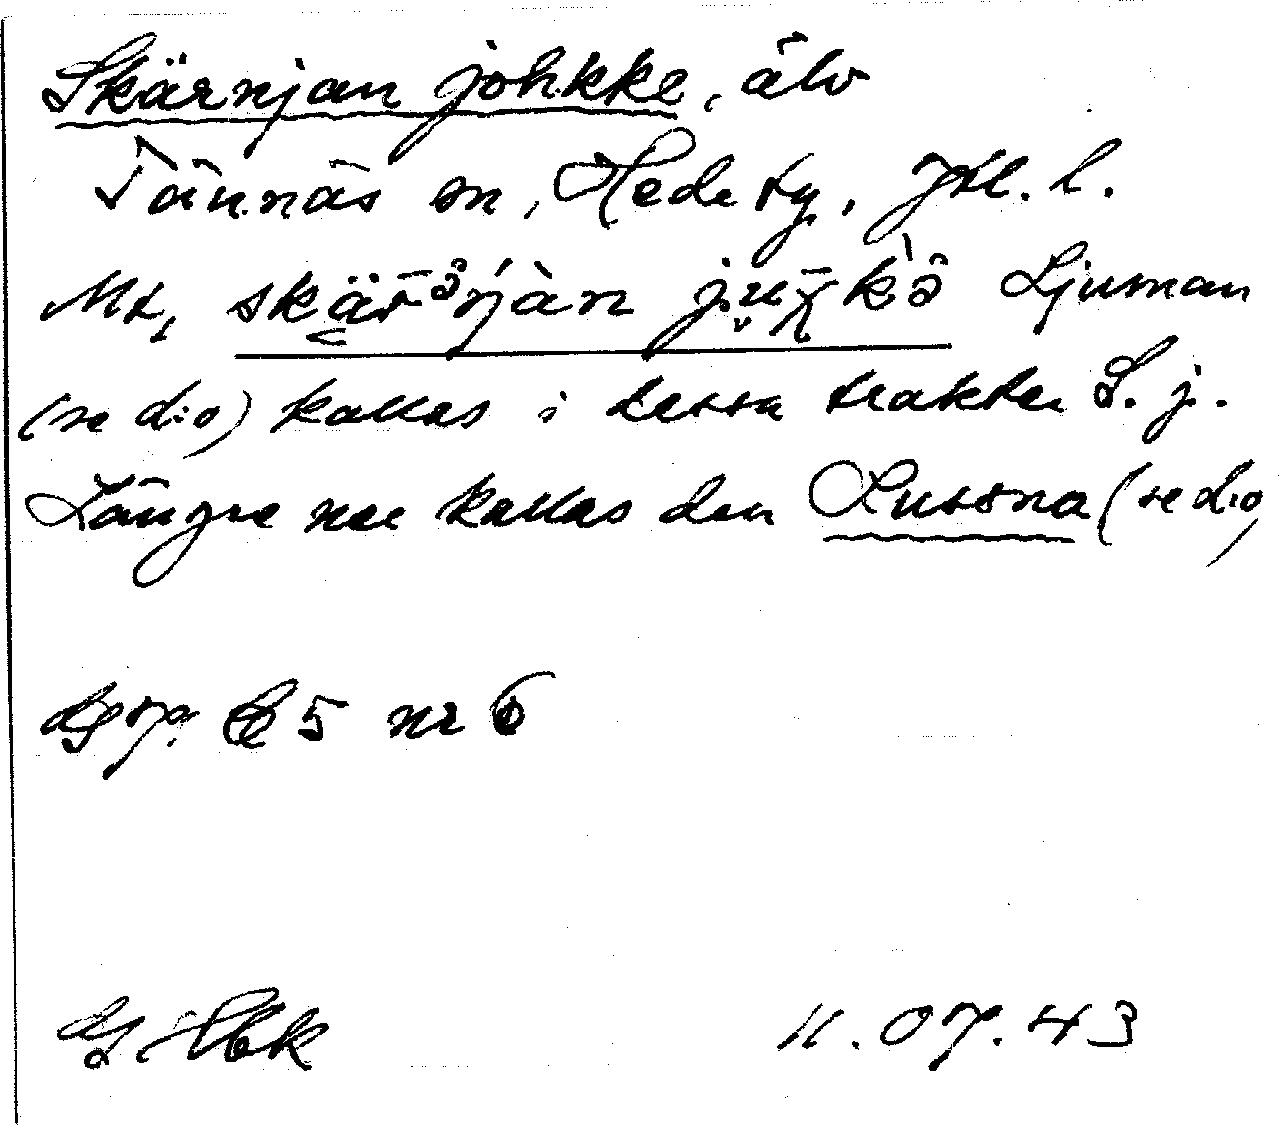 Skärnjan johkke, älv
Tännäs sn, Hede tg, Jtl. l.
Mt, skär njàn Ljusnan
(se d:o) kallas i dessa trakter S. j.
Längre ner kallas den Lussna (se d:o)
5 nr 6
11.07.43